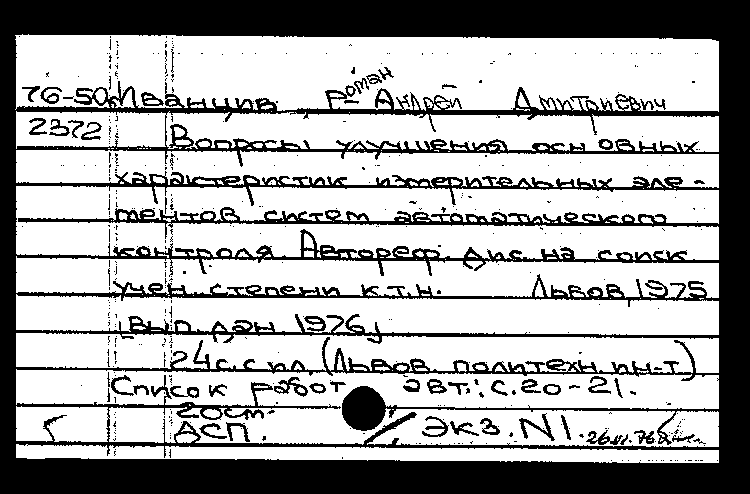 76-50 Иванцив Роман-Андрей Дмитриевич
2372 Вопросы улучшения основных
характеристик измерительных эле-
ментов систем автоматического
контроля. Автореф. дис. на соиск
учен. степени к.т.н. Львов, 1975
[вып. дан. 1976]
24 с. с ил. (Львов. политехн. ин-т).
Список работ авт.: с. 20-21.
20 ст.
ДСП. Экз. N1. 26.VI.76